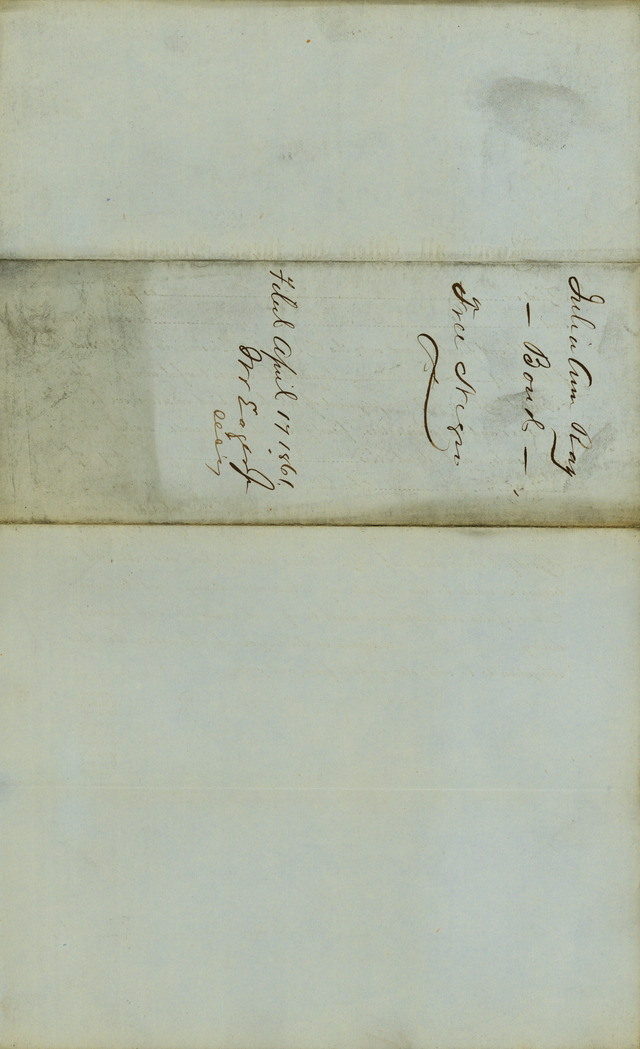 Julia Ann Ray
— Bond —
Free Negro
Filed April 17 1861
Wm Eager Jr